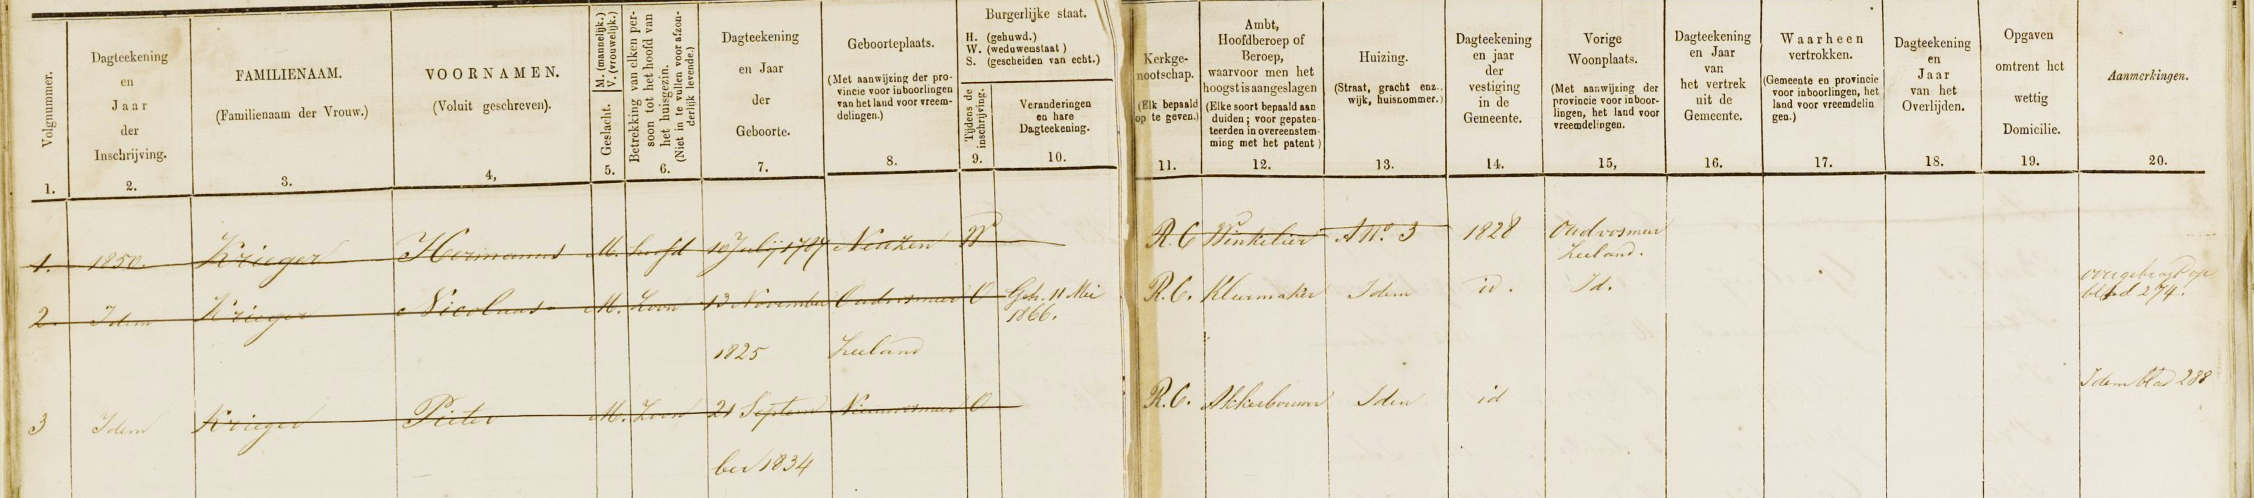 Volgnummer.
1.
Dagteekening
en
Jaar
der
Inschrijving.
2.
FAMILIENAAM.
(Familienaam der Vrouw.)
3.
VOORNAMEN.
(Voluit geschreven).
4,
M. (mannelijk.)
V. (vrouwelijk.)
Geslacht.
5.
Betrekking van elken per-
soon tot het hoofd van
het huisgezin.
(Niet in te vullen voor afzon-
derlijk levende.)
6.
Dagteekening
en Jaar
der
Geboorte.
7.
Geboorteplaats.
(Met aanwijzing der pro-
vincie voor inboorlingen
van het land voor vreem-
delingen.)
8.
Burgerlijke staat.
H. (gehuwd.)
W. (weduwenstaat)
S. (gescheiden van echt.)
Tijdens de
inschrijving.
9.
Veranderingen
en hare
Dagteekening.
10.
Kerkge-
nootschap.
(Elk bepaald
op te geven.)
11.
Ambt,
Hoofdberoep of
Beroep,
waarvoor men het
hoogst is aangeslagen
(Elke soort bepaald aan
duiden; voor gepaten-
teerden in overeenstem-
ming met het patent)
12.
Huizing.
(Straat, gracht enz..
wijk, huisnommer.)
13.
Dagteekening
en jaar
der
vestiging
in de
Gemeente.
14.
Vorige
Woonplaats.
(Met aanwijzing der
provincie voor inboor-
lingen, het land voor
vreemdelingen.
15,
Dagteekening
en Jaar
van
het vertrek
uit de
Gemeente.
16.
Waarheen
vertrokken.
(Gemeente en provincie
voor inboorlingen, het
land voor vreemdelin
gen.)
17.
Dagteekening
en
Jaar
van het
Overlijden.
18.
Opgaven
omtrent het
wettig
Domicilie.
19.
Aanmerkingen.
20.
1. 1850. Krieger Hermanus M. hoofd 10 Julij 1787 W R.C Winkelier A No. 3 1828 Oudvosmeer
Zeeland.
2. Idem Krieger Nicolaas M. Zoon 13 November Oudvosmeer O Geh. 11 Mei R.C. Kleermaker Idem id. Id. overgebragt op
1866. blad 274.
1825 Zeeland
3 Idem Krieger Pieter M. Zoon 21 Septem Nieuwvosmeer O R.C. Akkerbouwer Idem id Idem blad 288
ber 1834